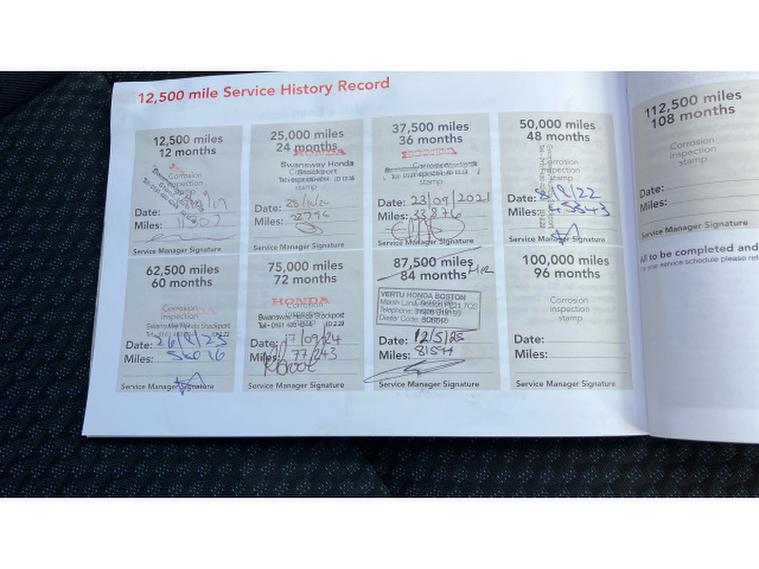 12,500 mile Service History Record
12,500 miles
12 months
Corrosion
inspection
stamp
Date:
Miles:
Service Manager Signature
25,000 miles
24 months
HONDA
Swansway Honda
Stockport
stamp
Date:
Miles: 22796
Service Manager Signature
37,500 miles
36 months
HONDA
stamp
Date: 23/09/2021
Miles: 33876
Service Manager Signature
50,000 miles
48 months
Corrosion
inspection
stamp
Date: 8/9/22
Miles: 45543
Service Manager Signature
62,500 miles
60 months
Corrosion
Swansway Honda Stockport
Date: 26/9/23
Miles: 56076
Service Manager Signature
75,000 miles
72 months
HONDA
Swansway Honda Stockport
Date: 17/09/24
Miles: 77243
Service Manager Signature
87,500 miles
84 months
VERTU HONDA BOSTON
Date: 12/5/25
Miles: 81544
Service Manager Signature
100,000 miles
96 months
Corrosion
inspection
stamp
Date:
Miles:
Service Manager Signature
112,500 miles
108 months
Corrosion
inspection
stamp
Date:
Miles:
Service Manager Signature
to be completed and
your service schedule please